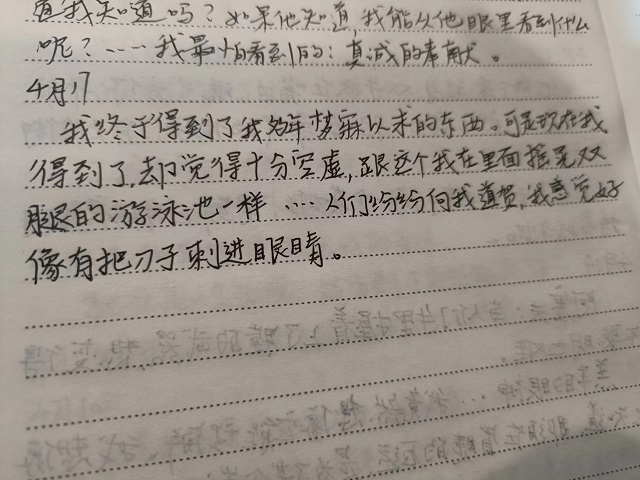 道我知道吗？如果他知道，我能从他眼里看到什么
呢？……我最怕看到的：真诚的奉献。
4月17
我终于得到了我多年梦寐以求的东西。可是现在我
得到了，却觉得十分空虚，跟这个我在里面摇晃双
腿的游泳池一样……人们纷纷向我道贺，我感觉好
像有把刀子刺进眼睛。